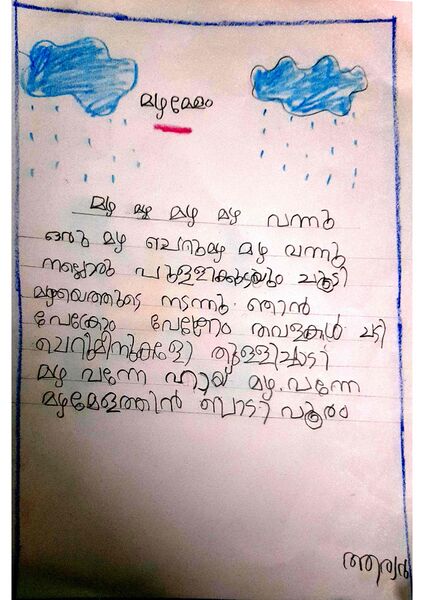 മഴമേളം
മഴ മഴ മഴ മഴ വന്നു
ഒരു മഴ ചെറുമഴ മഴ വന്നു
നല്ലൊരു പുള്ളിക്കുടയും ചൂടി
മഴയെത്തൂടെ നടന്നു ഞാൻ
പേക്രോം പേക്രോം തവളകൾ പാടി
ചെറുമീനുകളോ തുള്ളിച്ചാടി
മഴ വന്നേ ഹായ് മഴ വന്നേ
മഴമേളത്തിൻ പൊടി പൂരം
ആര്യൻ